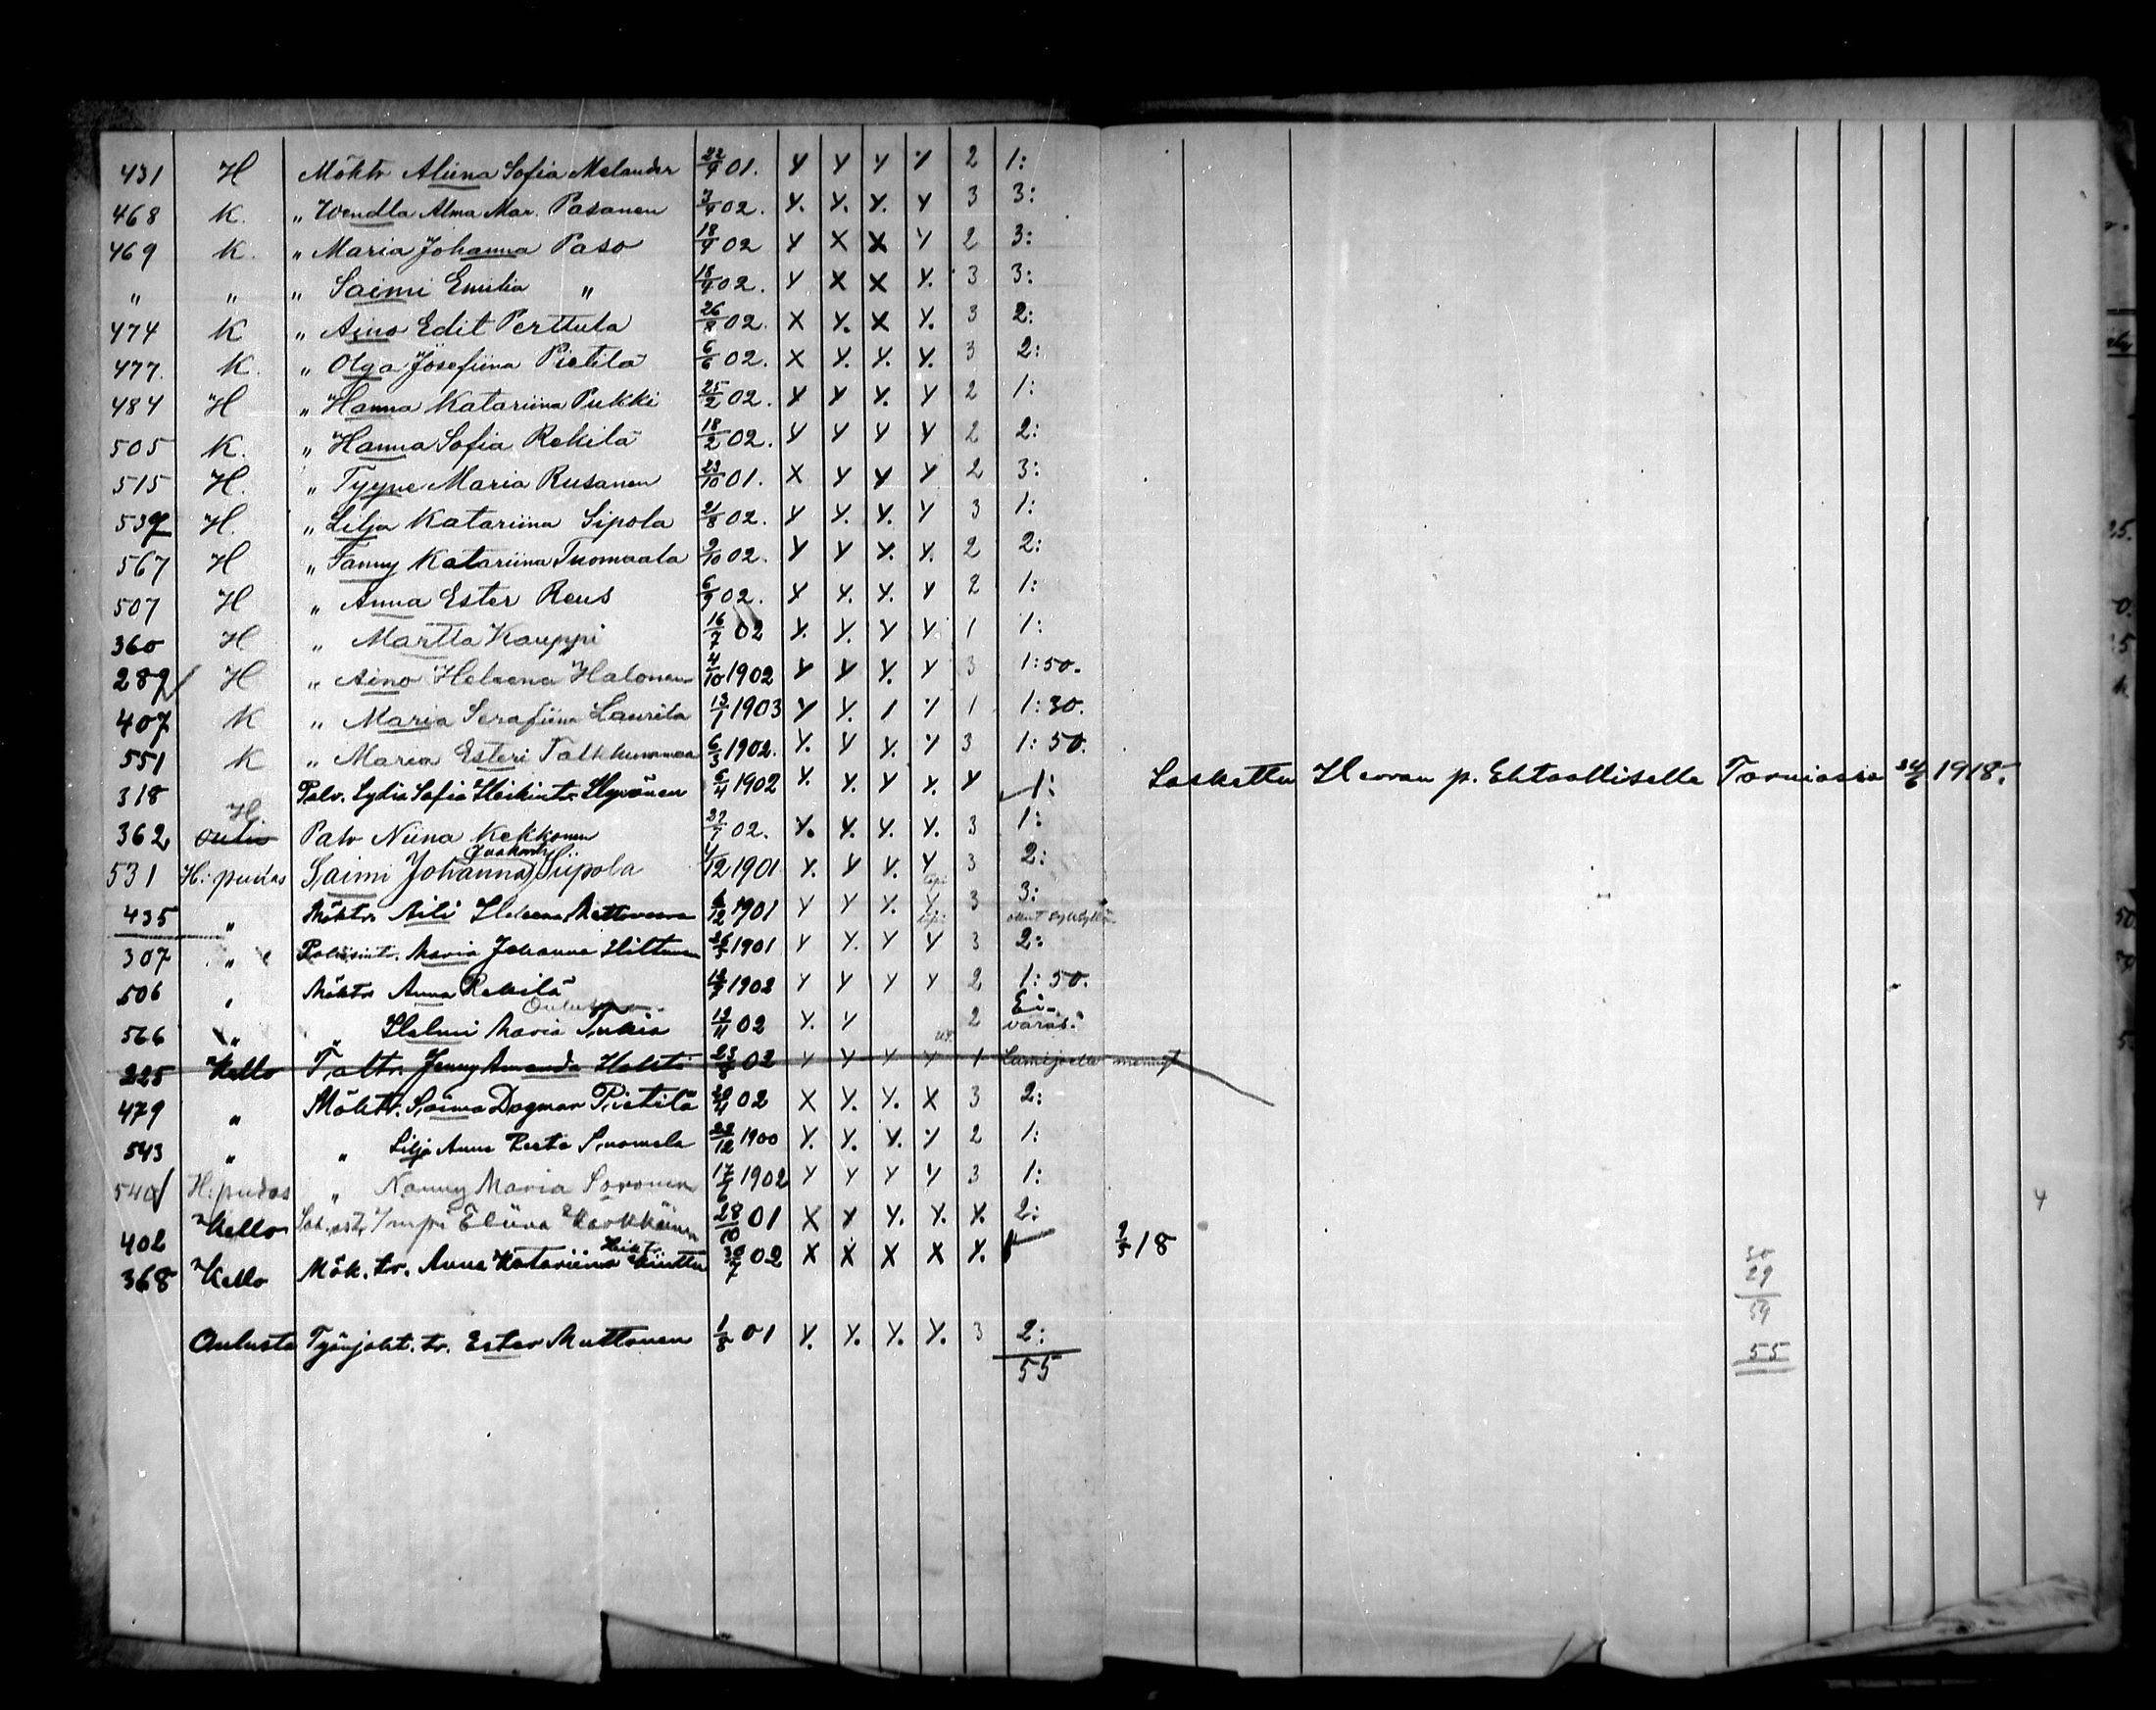 431 H Möktr Aliina Sofia Melander 22/9 01. y y y y 2 1:
468 K. " Wendla Alma Mar. Pasanen 3/9 02. y. y. y. y 3 3:
469 K. " Maria Johanna Paso 18/9 02 y x x y 2 3:
" " " Saimi Emilia " 18/9 02. y x x y. 3 3:
474 K " Aino Edit Perttula 26/8 02. x y. x y. 3 2:
477. K. " Olga Josefiina Pietilä 6/6 02. x y. y. y. 3 2:
484 H " Hanna Katariina Pukki 25/2 02. y y y. y 2 1:
505 K. " Hanna Sofia Rekilä 18/2 02. y y y y 2 2:
515 H. " Tyyne Maria Rusanen 23/10 01. x y y y 2 3:
539 H. " Lilja Katariina Sipola 21/8 02. y y. y. y 3 1:
567 H " Fanny Katariina Tuomaala 9/10 02. y y y. y. 2 2:
507 H " Anna Ester Reus 6/9 02. y y. y. y 2 1:
360 H " Martta Kauppi 16/7 02 y. y. y y. 1 1:
289 H " Aino Heleena Halonen 4/10 1902 y y y. y 3 1:50.
407 K " Maria Serafiina Laurila 13/1 1903 y y. 1 y 1 1:30.
551 K " Maria Esteri Talkkunamaa 6/3 1902. y. y y. y 3 1:50.
318 Palv. Lydia Sofia Heikintr. Hyvönen 6/4 1902 y. y. y. y. y 1: Laskettu Herran p. Ehtoolliselle Torniossa 24/6 1918.
H.
362 Oulu Palv Niina Kekkonen 27/7 02. y. y. y. y. 3 1:
Jaakontr.
531 H:pudas Saimi Johanna Siipola 4/12 1901 y. y y. y 3 2:
435 " Möktr Aili Heleena 6/12 1901 y y y. y 3 3:
307 " Maria Johanna Hiltunen 1901 y y. y y 3 2:
506 " Möktr Anna Rekilä 1902 y y y y 2 1:50.
566 " " Helmi Maria 13/11 02 y. y 2 Ei varas.
225 Kello Taltr. Jenny Amanda Hahti 23/8 02 y y y y 1 Lumijoelle mennyt
479 " Möktr. Saima Dagmar Pietilä 20/4 02 x y. y. x 3 2:
543 " " Lilja Anna Suomela 22/12 1900 y. y. y. y 2 1:
540 H:pudas " Nanny Maria Soronen 17/6 1902 y y y y 3 1:
402 Kello Impi Eliina Karkkäinen 28/10 01 x y y. y. y. 2:
Heikt.
368 Kello Mök. tr. Anna Katariina 30/7 02 x x x x y. 2/5 18
Oulusta Työnjoht. tr. Ester Muttonen 1/8 01 y. y. y. y. 3 2:
55
30
29
59
55
4